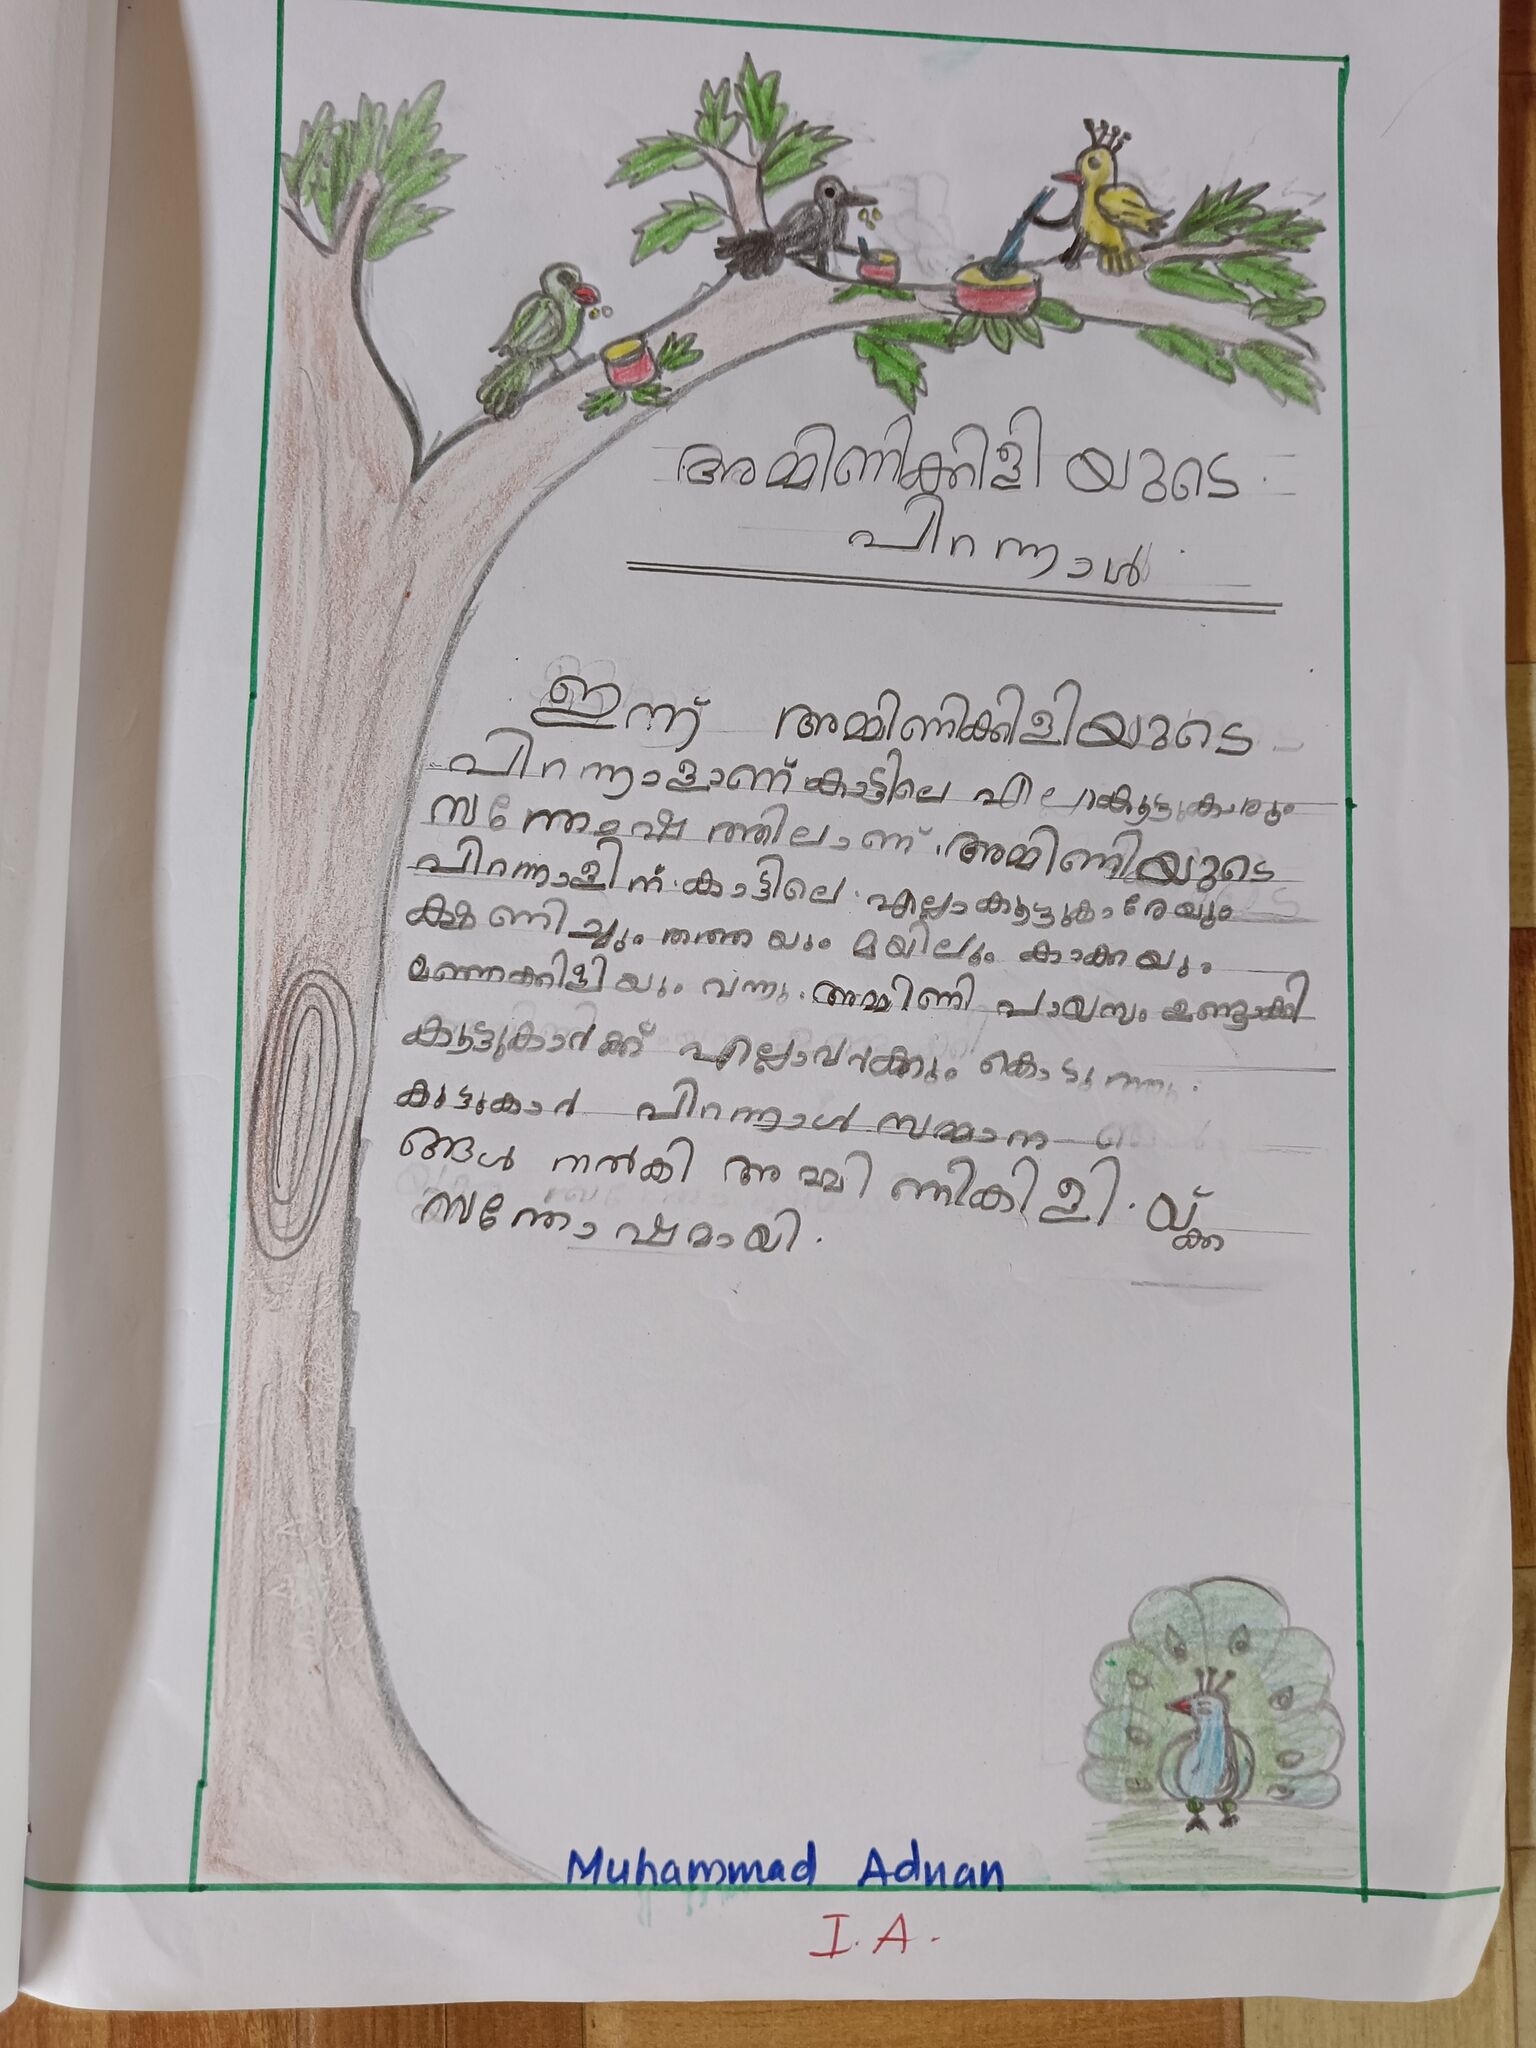 അമ്മിണിക്കിളിയുടെ
പിറന്നാൾ
ഇന്ന് അമ്മിണിക്കിളിയുടെ
പിറന്നാളാണ് കാട്ടിലെ എല്ലാകൂട്ടുകാരും
സന്തോഷത്തിലാണ്. അമ്മിണിയുടെ
പിറന്നാളിന് കാട്ടിലെ എല്ലാകൂട്ടുകാരേയും
ക്ഷണിച്ചും തത്തയും മയിലും കാക്കയും
മഞ്ഞക്കിളിയും വന്നു. അമ്മിണി പായസം ഉണ്ടാക്കി
കൂട്ടുകാർക്ക് എല്ലാവർക്കും കൊടുത്തു.
കുട്ടുകാർ പിറന്നാൾ സമ്മാന
ങ്ങൾ നൽകി അമ്മിണികിളി.യ്ക്ക
സന്തോഷമായി.
Muhammad Adnan
I. A.